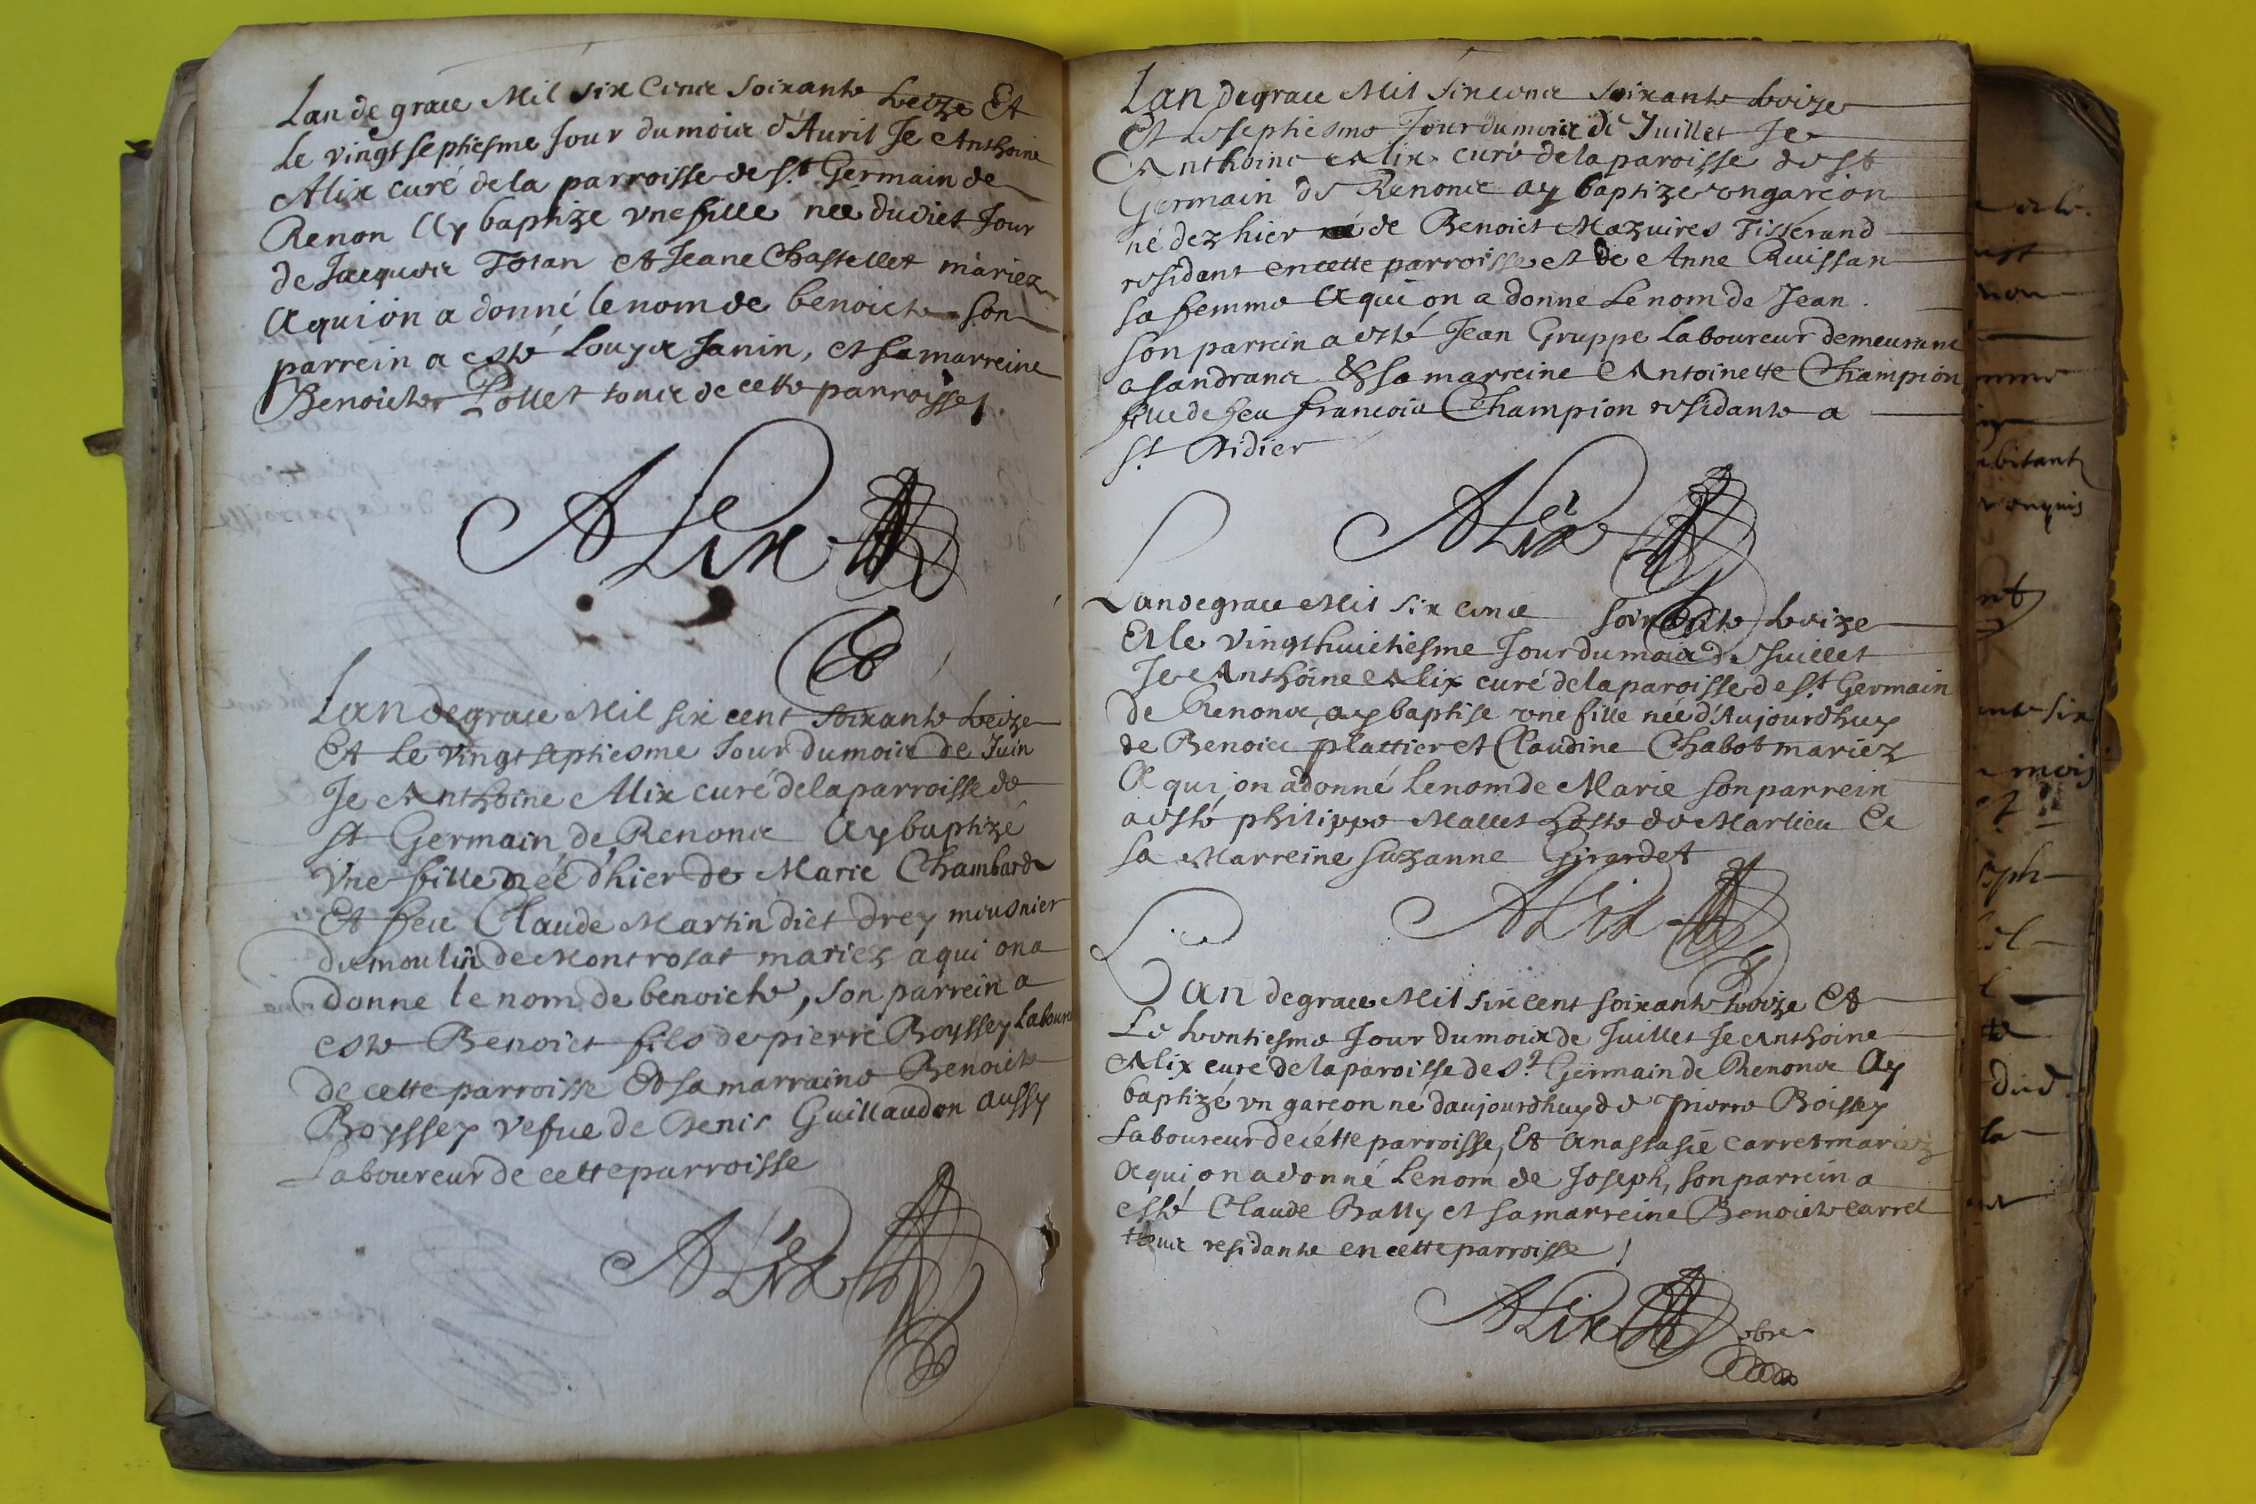 Lan de grace Mil six cens soixante treize Et
Le vingt septiesme Jour du mois d'Auril Je Anthoine
Alix curé de la parroisse de St Germain de
Renon Ay baptize vne fille nee dudict Jour
de Jacques Totan et Jeane Chastellet mariez
A qui on a donné le nom de benoicte son
parrein a esté Louys Janin, et sa marreine
Benoicte Pollet tous de cette parroisse
Alix
Lan de grace Mil six cent soixante treize
Et Le vingt septiesme Jour du mois de Juin
Je Anthoine Alix curé de la parroisse de
St Germain de Renons Ay baptizé
Vne fille née d'hier de Marie Chambard
Et feu Claude Martin dict Drey mousnier
du moulin de Montrosat mariez a qui on a
donne le nom de benoicte, son parrein a
este Benoict fils de pierre Boyssey Labour
de cette parroisse Et sa marraine Benoicte
Boyssey vefue de Denis Guillaudon aussy
Laboureur de cette parroisse
Alix
Lan de grace Mil six cens soixante treize
Et Le septiesme Jour du mois de Juillet Je
Anthoine Alix curé de la paroisse de St
Germain de Renons ay baptize vn garcon
né dez hier de Benoict Mazuires Tisserand
residant en cette parroisse et de Anne Ruissan
sa femme A qui on a donne Le nom de Jean
son parrein a esté Jean Gruppe Laboureur demeurant
a sandrans & sa marreine Antoinette Champion
fille de feu francois Champion residante a
St Didier
Alix
Lan de grace Mil six cens soixante treize
Et le vingt huictiesme Jour du mois de Juillet
Je Anthoine Alix curé de la paroisse de St Germain
de Renons, ay baptise vne fille née d'Aujourdhuy
de Benoict plattier et Claudine Chabot mariez
A qui on a donné Le nom de Marie son parrein
a esté philippe Mallet hoste de Marlieu Et
sa Marreine suzanne Girardet
Alix
Lan de grace Mil six cent soixante treize Et
Le trentiesme Jour du mois de Juillet Je Anthoine
Alix curé de la paroisse de St Germain de Renons Ay
baptizé vn garcon né daujourdhuy de pierre Boissey
Laboureur de cette parroisse, Et Anastasie Carret mariez
A qui on a donné Le nom de Joseph, son parrein a
esté Claude Bally et sa marreine Benoicte Carret
tous residants en cette parroisse
Alix